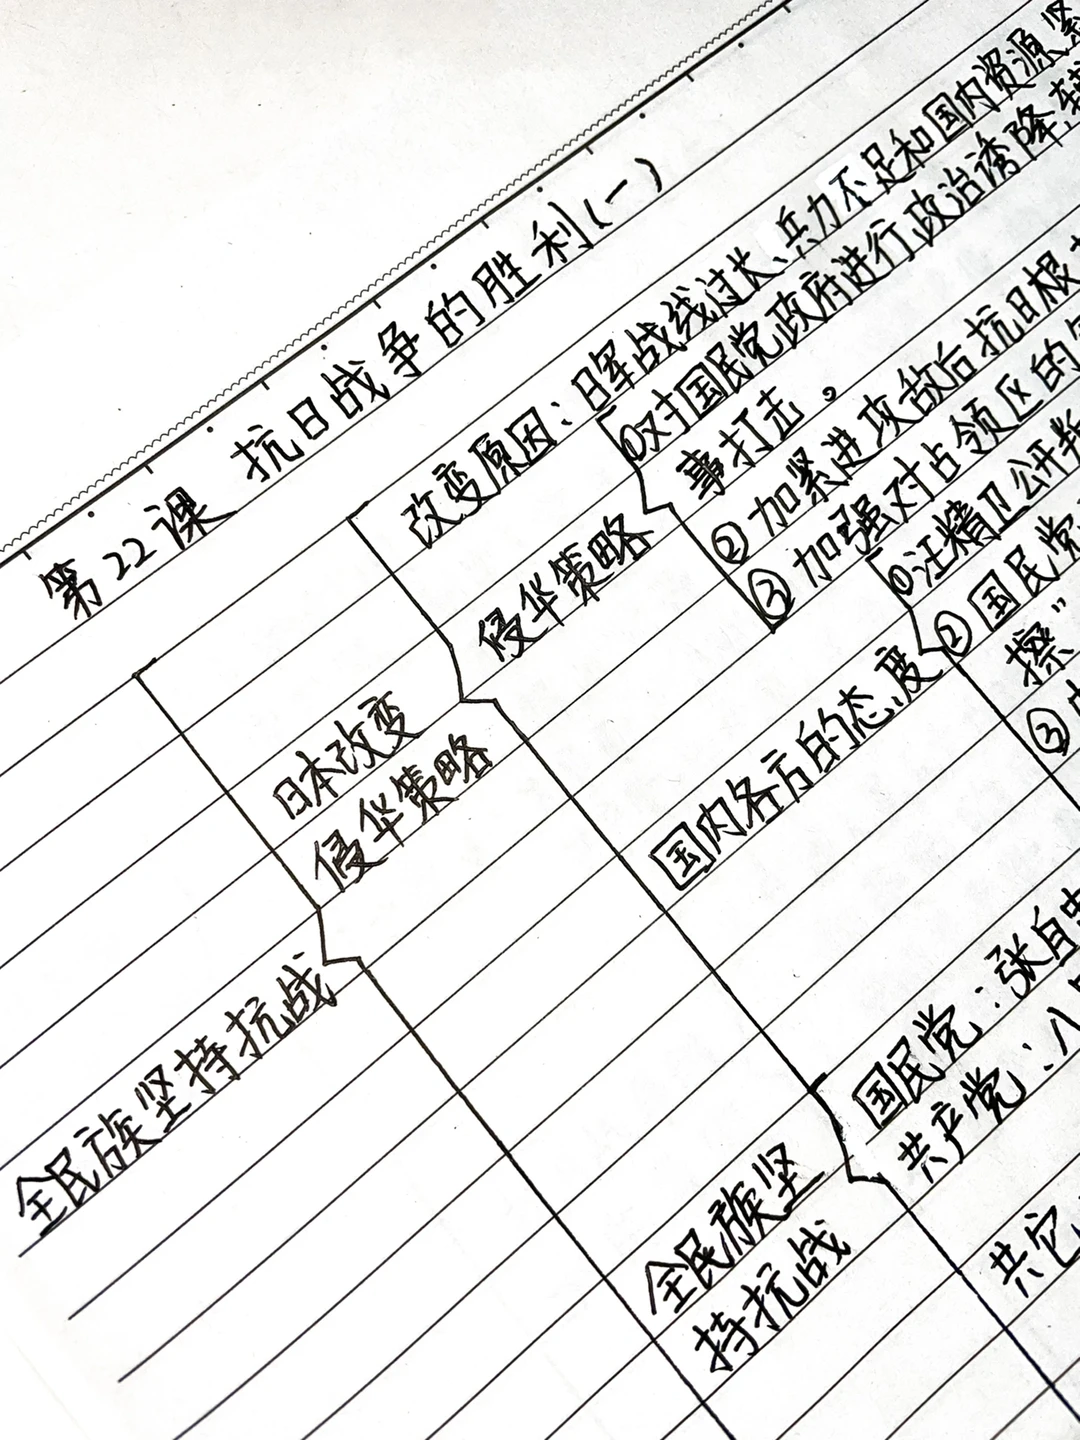 第22课 抗日战争的胜利(一)
改变原因:日军战线过长、兵力不足和国内资源紧
①对国民党政府进行政治诱降,
事打击。
侵华策略
②加紧进攻敌后抗日根
③加强对占领区的
日本改变
侵华策略
①汪精卫公开
②国民党
擦”
③
国内各方的态度
全民族坚持抗战
国民党:张自忠
共产党:八
全民族坚
持抗战
共它